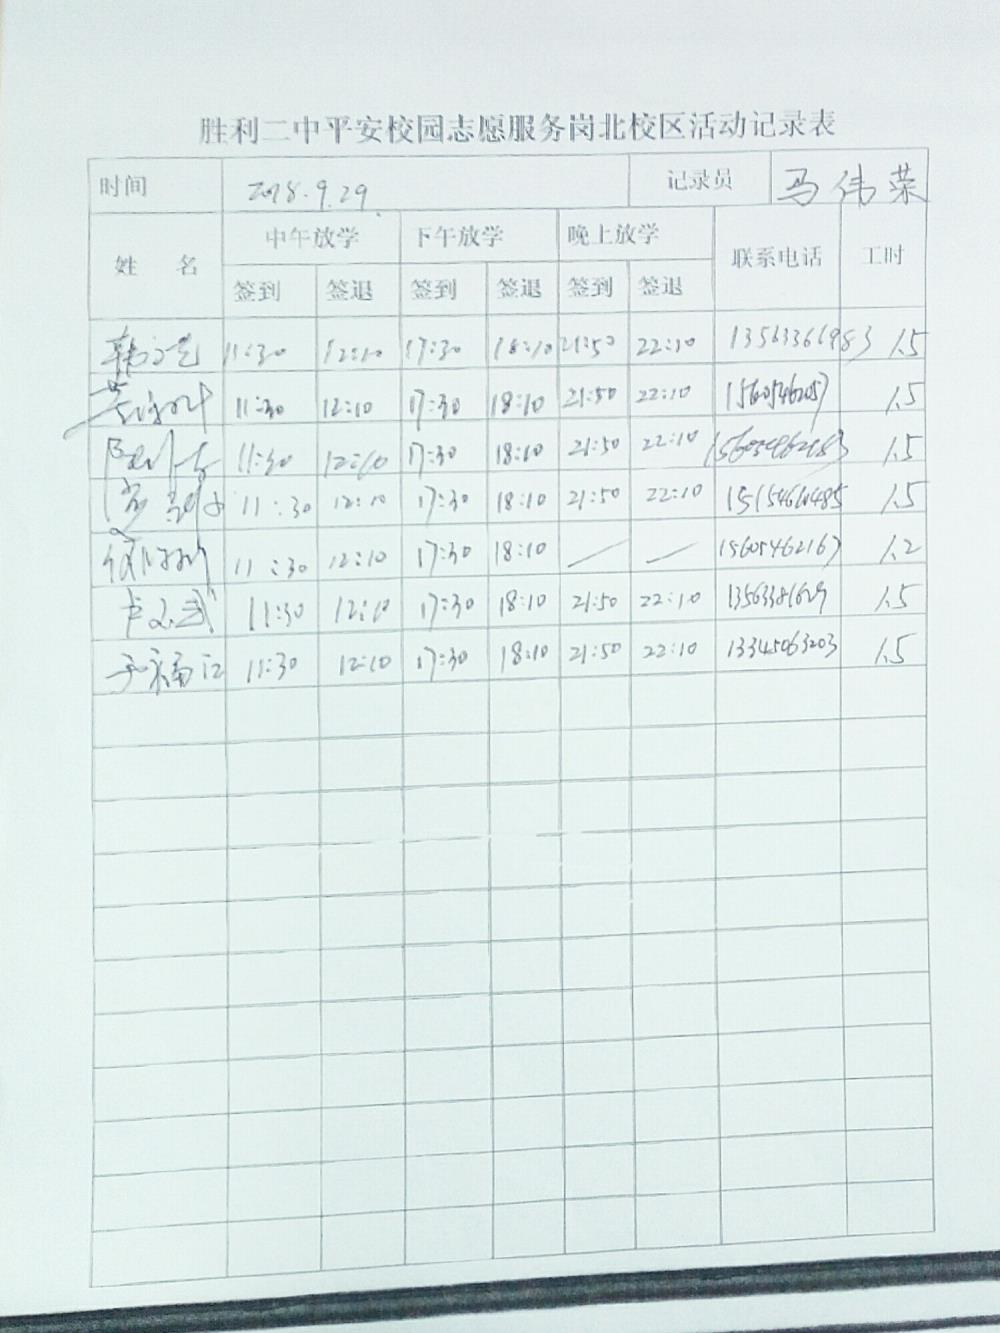 胜利二中平安校园志愿服务岗北校区活动记录表
时间 2018.9.29. 记录员 马伟荣
姓 名 中午放学 下午放学 晚上放学 联系电话 工时
签到 签退 签到 签退 签到 签退
11:30 12:10 17:30 18:10 21:50 22:10 13563361983 1.5
11:30 12:10 17:30 18:10 21:50 22:10 1.5
11:30 12:10 17:30 18:10 21:50 22:10 1.5
11:30 12:10 17:30 18:10 21:50 22:10 1.5
11:30 12:10 17:30 18:10 — — 15605462167 1.2
11:30 12:10 17:30 18:10 21:50 22:10 1.5
于福江 11:30 12:10 17:30 18:10 21:50 22:10 13345063203 1.5